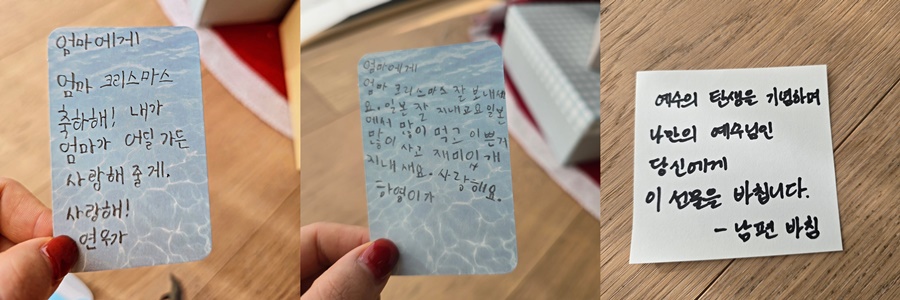 엄마에게
엄마 크리스마스
축하해! 내가
엄마가 어딜 가든
사랑해 줄게.
사랑해!
연우가
엄마에게
엄마 크리스마스 잘 보내세
요. 일본 잘 지내고요 일본
에서 많이 먹고 이쁜거
많이 사고 재미있게
지내세요. 사랑해요.
하영이가
예수의 탄생을 기념하며
나만의 예수님인
당신에게
이 선물을 바칩니다.
- 남편 바침